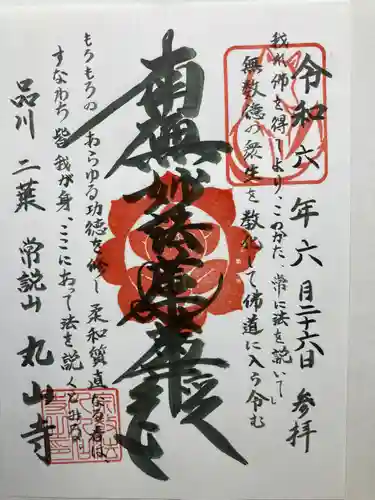 令和六年六月二十六日 参拝
我れ佛を得しより、このかた、常に法を説いて
無数億の衆生を教化して佛道に入ら令む
南無妙法蓮華経
もろもろの あらゆる功徳を修し 柔和質直なる者は、
すなわち 皆 我が身、ここにおって 法を説くとみる
品川 二葉 常説山 丸山寺